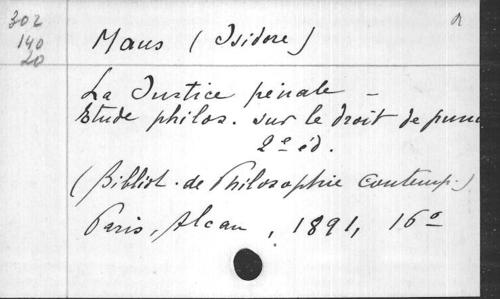 302
140
20
Maus (Isidore)
La Justice pénale –
Etude philos. sur le droit de puni
2e éd.
(Bibliot. de Philosophie contemp.)
Paris, Alcan, 1891, 16o